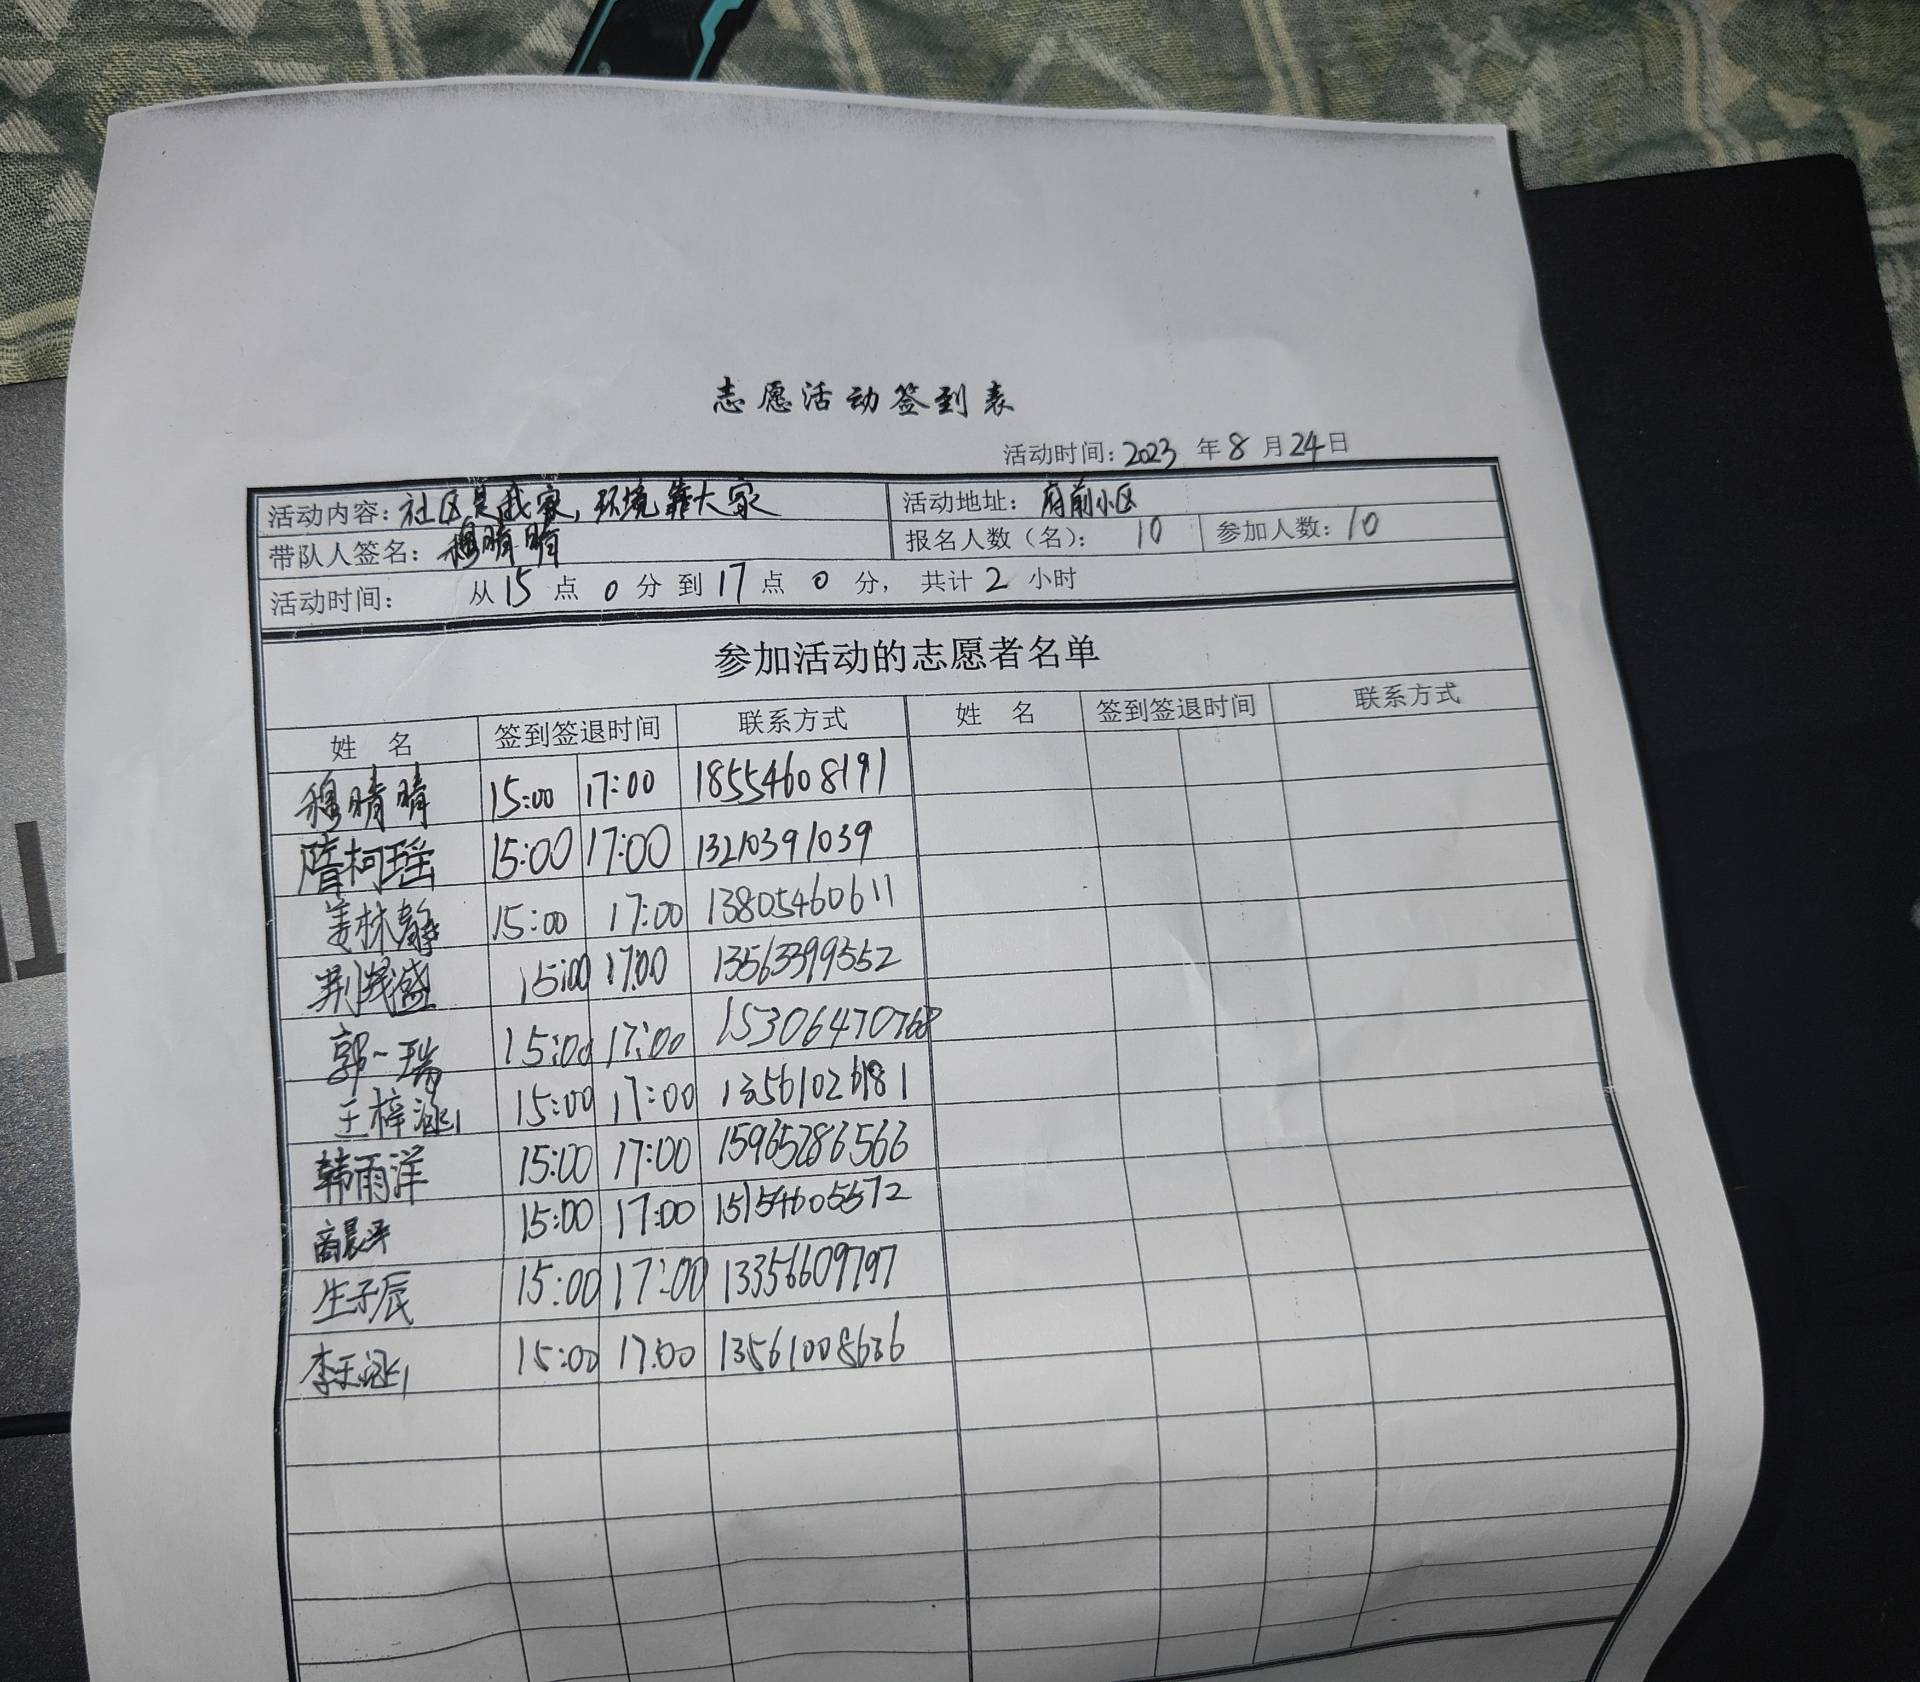 志愿活动签到表
活动时间：2023 年 8 月 24 日
活动内容：社区是我家，环境靠大家 活动地址：府前小区
带队人签名：穆晴晴 报名人数（名）： 10 参加人数：10
活动时间： 从 15 点 0 分 到 17 点 0 分， 共计 2 小时
参加活动的志愿者名单
姓 名 签到签退时间 联系方式 姓 名 签到签退时间 联系方式
穆晴晴 15:00 17:00 18554608191
隋柯瑶 15:00 17:00 13210391039
姜林静 15:00 17:00 13805460611
荆晟盛 15:00 17:00 13563399552
郭一瑞 15:00 17:00 15306470768
王梓涵 15:00 17:00 13561026181
韩雨洋 15:00 17:00 15965286566
商晨 15:00 17:00 15154605572
生子辰 15:00 17:00 13356609797
李玉涵 15:00 17:00 13561008636